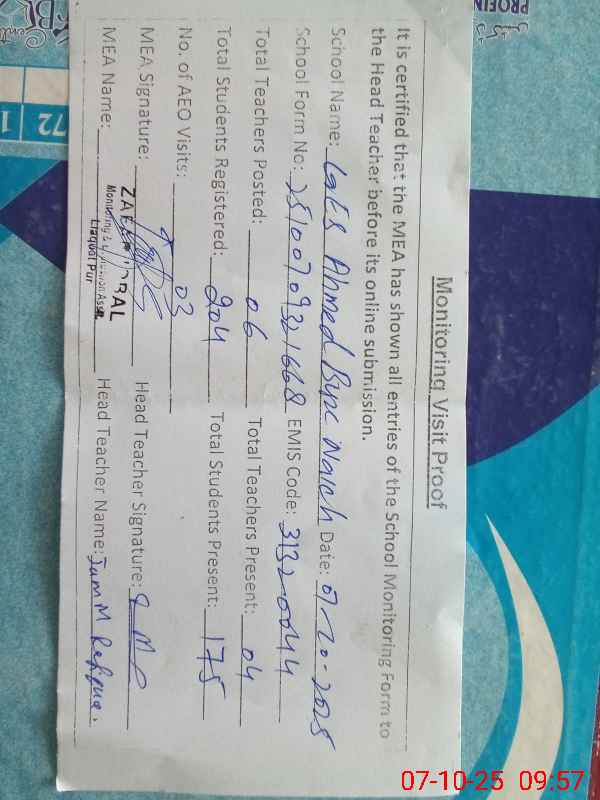 Monitoring Visit Proof
It is certified that the MEA has shown all entries of the School Monitoring Form to
the Head Teacher before its online submission.
School Name: Ahmed Date: 07-10-2025
School Form No: 2510070931668 EMIS Code: 31320044
Total Teachers Posted: 06 Total Teachers Present: 04
Total Students Registered: 204 Total Students Present: 175
No. of AEO Visits: 03
MEA Signature: Head Teacher Signature:
MEA Name: Head Teacher Name: Jam M Rafique.
Liaquat Pur
PROFIN
72 1
07-10-25 09:57